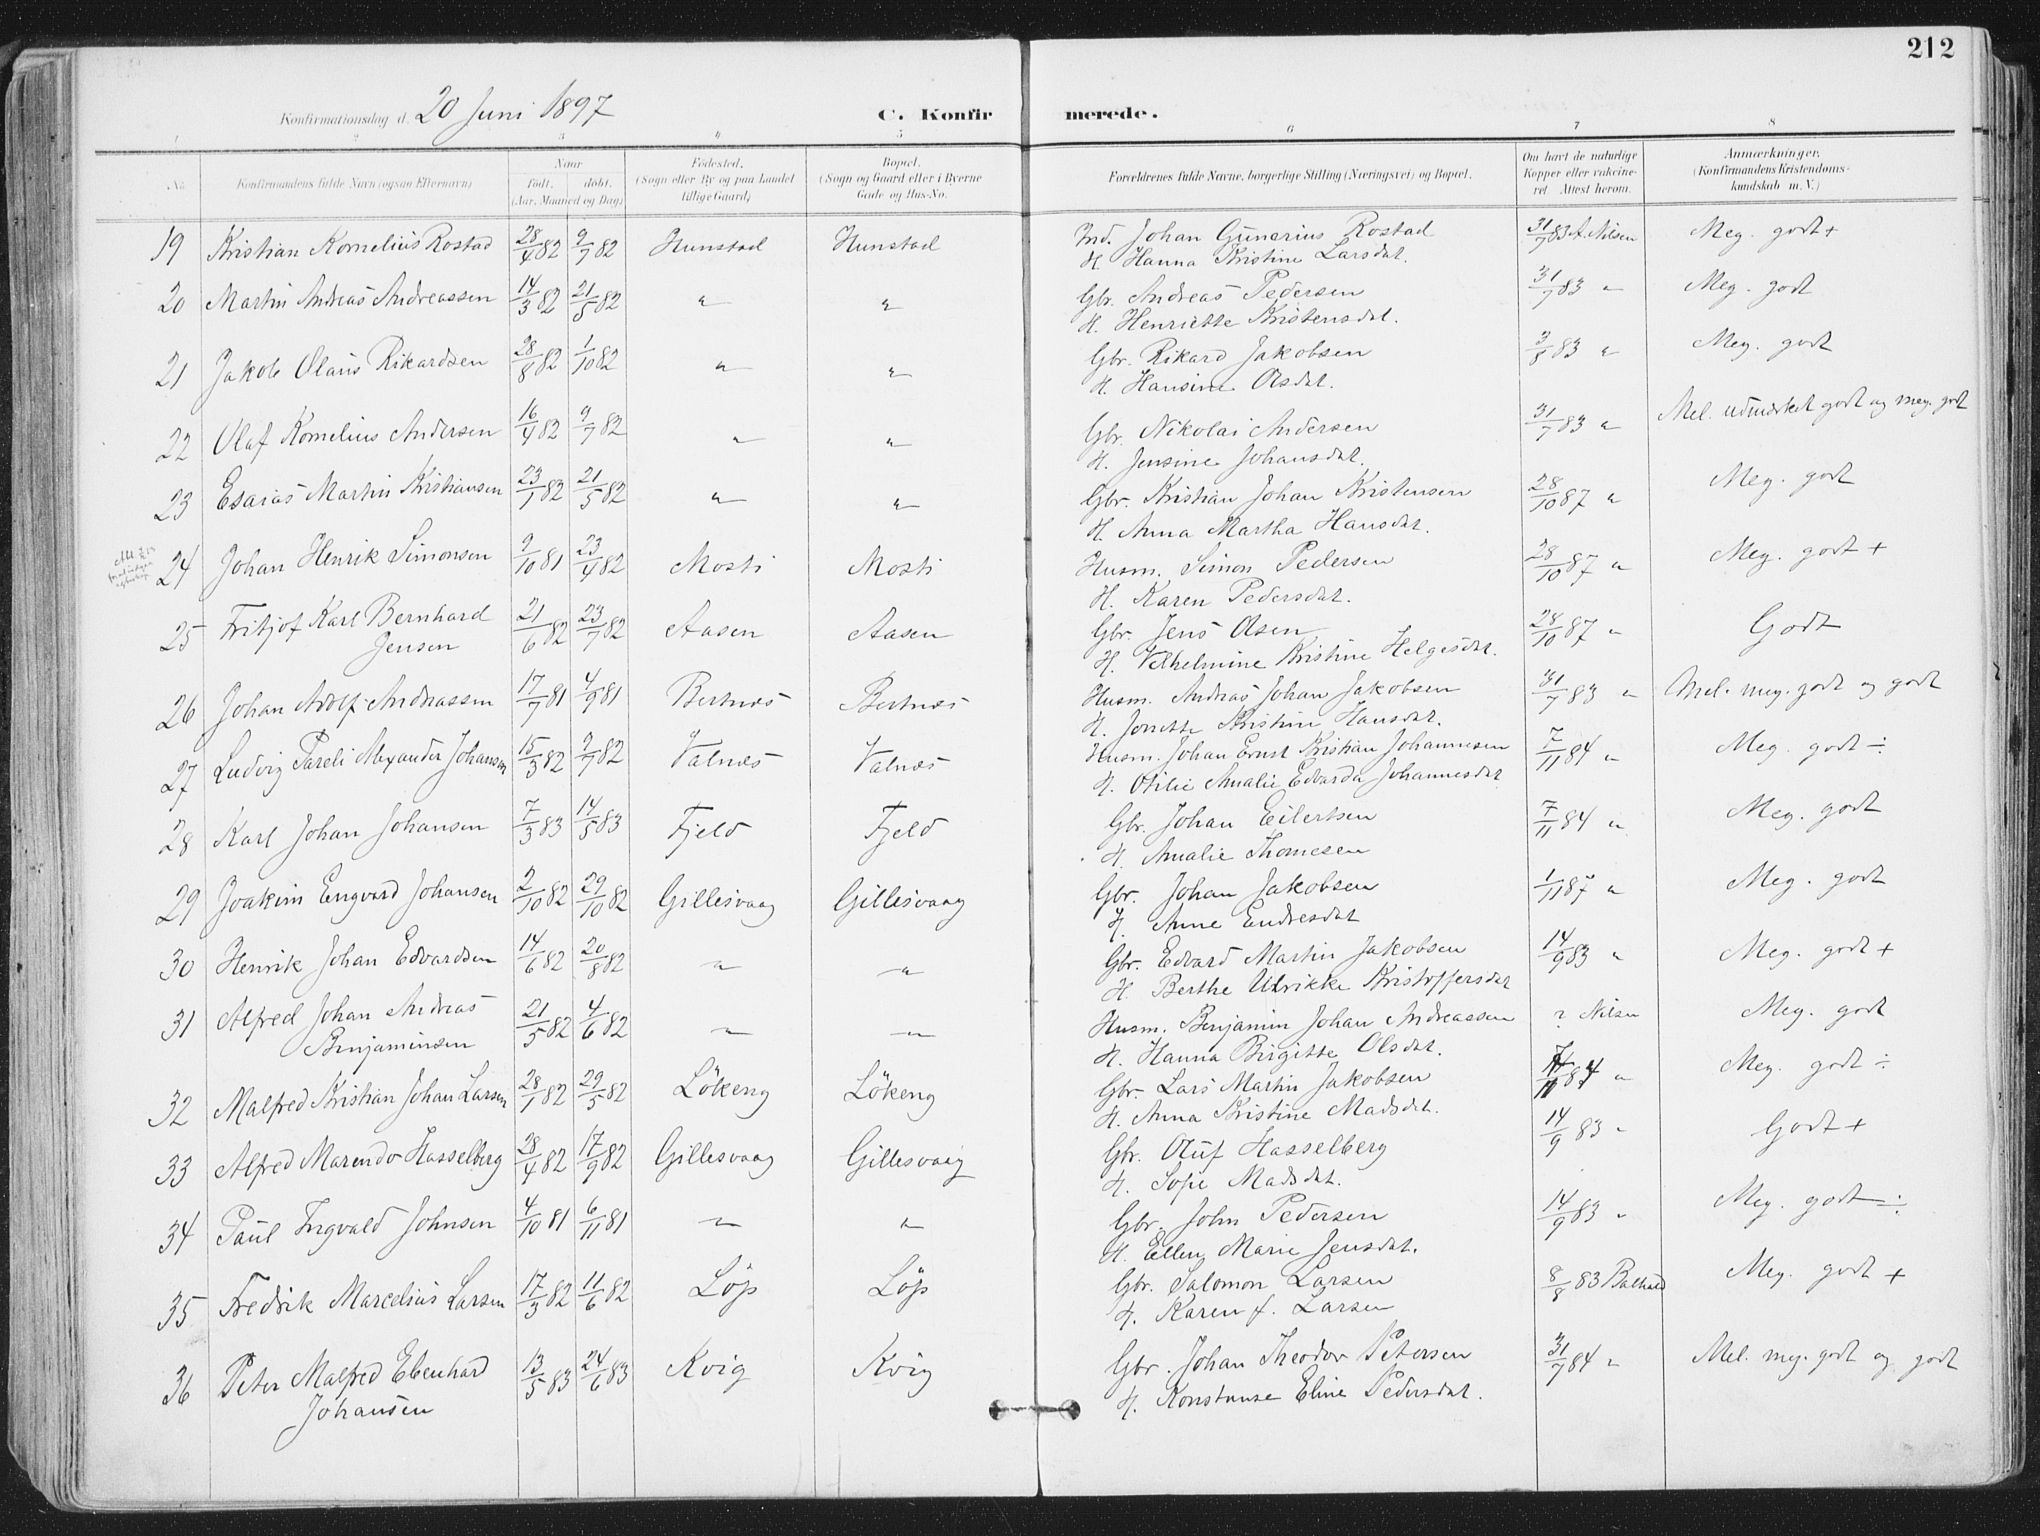 212
Konfirmationsdag d. 20 Juni 1897 C. Konfirmerede.
1 2 3 4 5 6 7 8
No. Konfirmandens fulde Navn (ogsaa Efternavn) Naar født. døbt. (Aar, Maaned og Dag) Fødested. (Sogn eller By og paa Landet tillige Gaard) Bopæl. (Sogn og Gaard eller i Byerne Gade og Hus-No. Forældrenes fulde Navne, borgerlige Stilling (Næringsvei) og Bopæl. Om havt de naturlige Kopper eller vakcineret. Attest herom. Anmærkninger. (Konfirmandens Kristendomskundskab m. V.)
19 Kristian Kornelius Rostad 28/4 82 9/7 82 Hunstad Hunstad Ind. Johan Gunerius Rostad 31/7 83 A. Nilsen Meg. godt +
H. Hanna Kristine Larsdat.
20 Martin Andreas Andreassen 14/3 82 21/5 82 " " Gbr. Andreas Pedersen 31/7 83 " Meg. godt
H. Henriette Kristensdat.
21 Jakob Olaus Rikardsen 28/8 82 1/10 82 " " Gbr. Rikard Jakobsen 3/8 83 " Meg. godt
H. Hansine Olsdat.
22 Olaf Kornelius Andersen 16/4 82 9/7 82 " " Gbr. Nikolai Andersen 31/7 83 " Mel. udmærket godt og meg. godt
H. Jensine Johansdat.
23 Esaias Martin Kristiansen 23/1 82 21/5 82 " " Gbr. Kristian Johan Kristensen 28/10 87 " Meg. godt
H. Anna Martha Hansdat.
24 Johan Henrik Simonsen 9/10 81 23/4 82 Mosti Mosti Husm. Simon Pedersen 28/10 87 " Meg. godt +
H. Karen Pedersdat.
25 Fritjof Karl Bernhard 21/6 82 23/7 82 Aasen Aasen Gbr. Jens Olsen 28/10 87 " Godt
Jensen H. Vilhelmine Kristine Helgesdat.
26 Johan Adolf Andreassen 17/7 81 4/9 81 Bertnæs Bertnæs Husm. Andreas Johan Jakobsen 31/7 83 " Mel. meg. godt og godt
H. Jonette Kristine Hansdat.
27 Ludvig Pareli Alexander Johansen 15/3 82 9/7 82 Valnæs Valnæs Husm. Johan Ernst Kristian Johannesen 7/11 84 " Meg. godt ÷
H. Otilie Amalie Edvarda Johannesdat
28 Karl Johan Johansen 7/3 83 14/5 83 Fjeld Fjeld Gbr. Johan Eilertsen 7/11 84 " Meg. godt
H. Amalie Thomesen
29 Joakim Engvard Johansen 2/10 82 29/10 82 Gillesvaag Gillesvaag Gbr. Johan Jakobsen 1/11 87 " Meg. godt
H. Anne Endresdat
30 Henrik Johan Edvardsen 14/6 82 20/8 82 " " Gbr. Edvard Martin Jakobsen 14/9 83 " Meg. godt +
H. Berthe Ulrikke Kristoffersdat
31 Alfred Johan Andreas 21/5 82 4/6 82 " " Husm. Benjamin Johan Andreassen ? Nilsen Meg. godt
Benjaminsen H. Hanna Birgitte Olsdat.
32 Malfred Kristian Johan Larsen 28/1 82 29/5 82 Lökeng Lökeng Gbr. Lars Martin Jakobsen 7/11 84 " Meg. godt ÷
H. Anna Kristine Madsdat.
33 Alfred Marendor Hasselberg 28/4 82 17/9 82 Gillesvaag Gillesvaag Gbr. Oluf Hasselberg 14/9 83 " Godt +
H. Sofie Madsdat.
34 Paul Ingvald Johnsen 4/10 81 6/11 81 " " Gbr. John Pedersen 14/9 83 " Meg. godt ÷
H. Ellen Marie Jensdat.
35 Fredrik Marcelius Larsen 17/3 82 11/6 82 Löp Löp Gbr. Salomon Larsen 8/8 83 Meg. godt +
H. Karen f. Larsen
36 Peter Malfred Ebenhard 13/5 83 24/6 83 Kvig Kvig Gbr. Johan Theodor Petersen 31/7 84 " Mel. meg. godt og godt
Johansen H. Konstanse Eline Pedersdat.